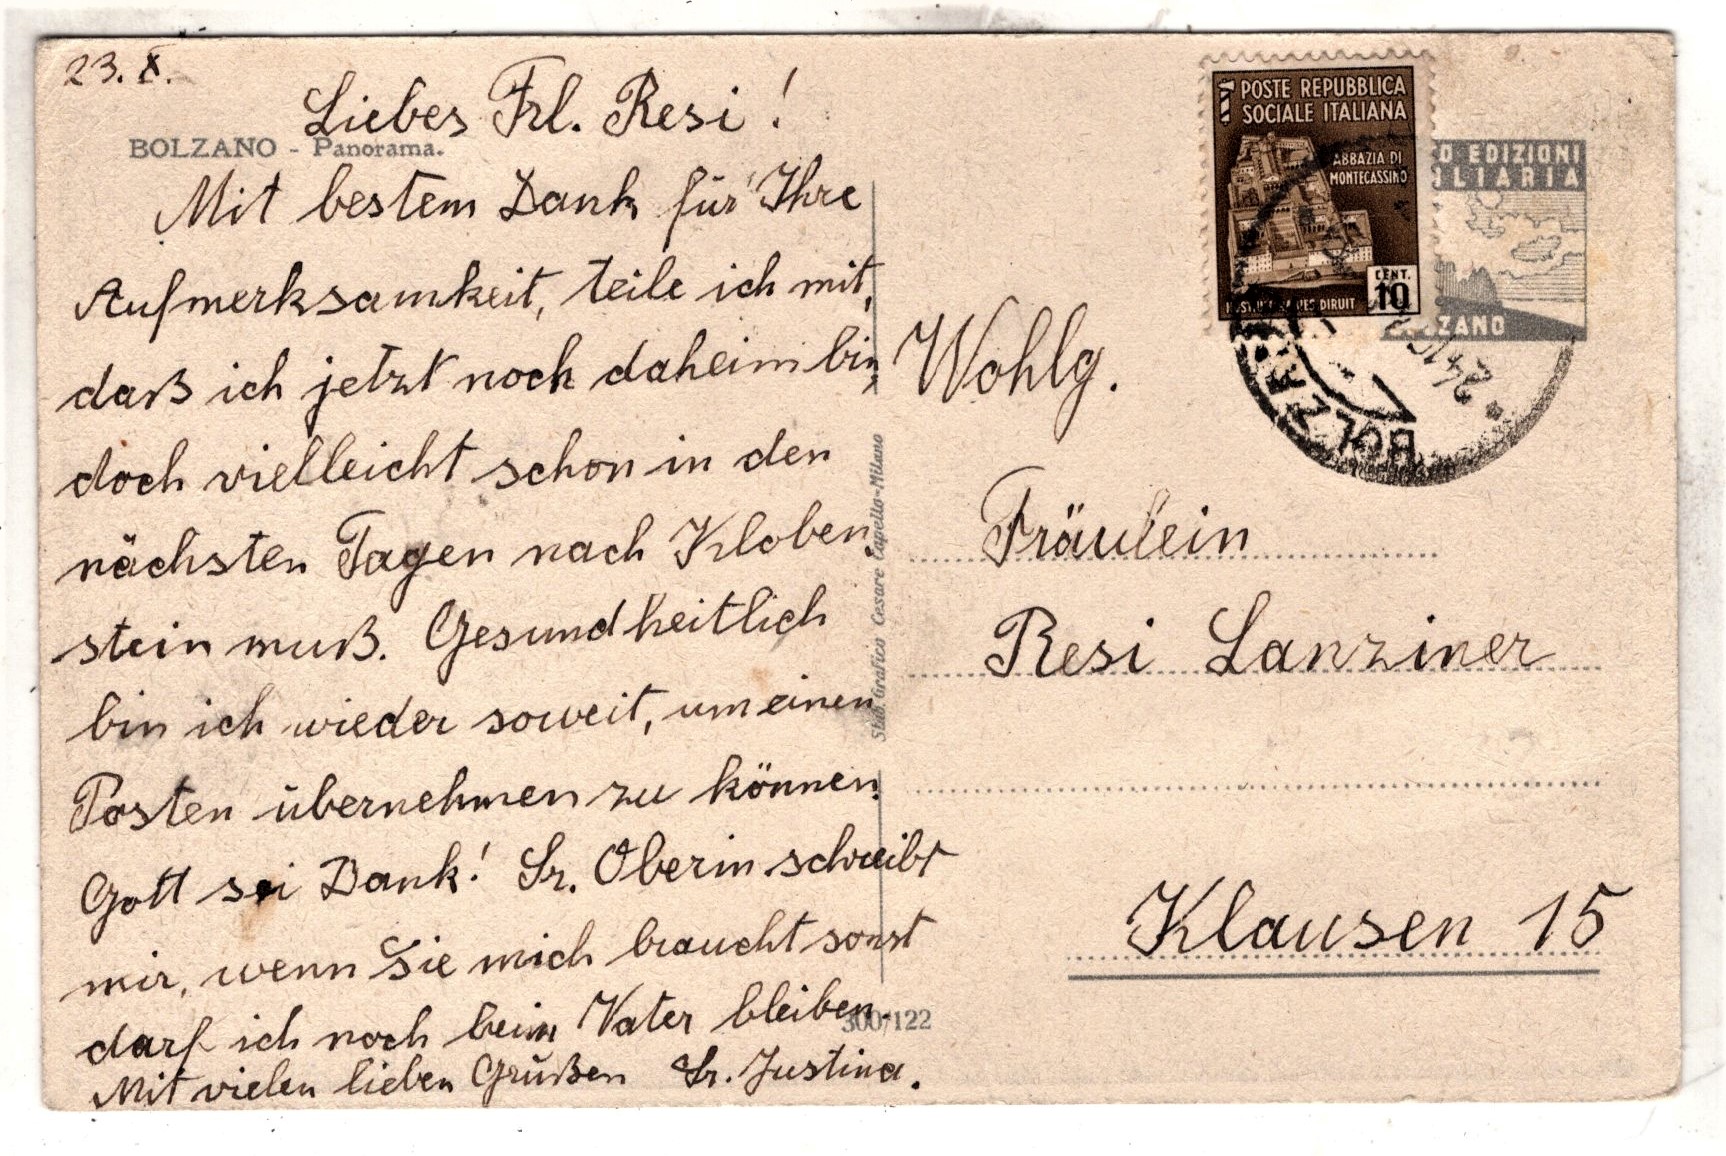 23. X.
Liebes Frl. Resi!
BOLZANO - Panorama.
Mit bestem Dank für Ihre
Aufmerksamkeit, teile ich mit,
daß ich jetzt noch daheim bin,
doch vielleicht schon in den
nächsten Tagen nach Kloben-
stein muß. Gesundheitlich
bin ich wieder soweit, um einen
Posten übernehmen zu können.
Gott sei Dank! Sr. Oberin schreibt
mir, wenn Sie mich braucht sonst
darf ich noch beim Vater bleiben.
Mit vielen lieben Grüßen Sr. Justina.
300/122
Stab. Grafico Cesare Capello-Milano
POSTE REPUBBLICA
SOCIALE ITALIANA
ABBAZIA DI
MONTECASSINO
CENT.
10
DIRUIT
O EDIZIONI
LIARIA
ZANO
BOLZA
Wohlg.
Fräulein
Resi Lanziner
Klausen 15